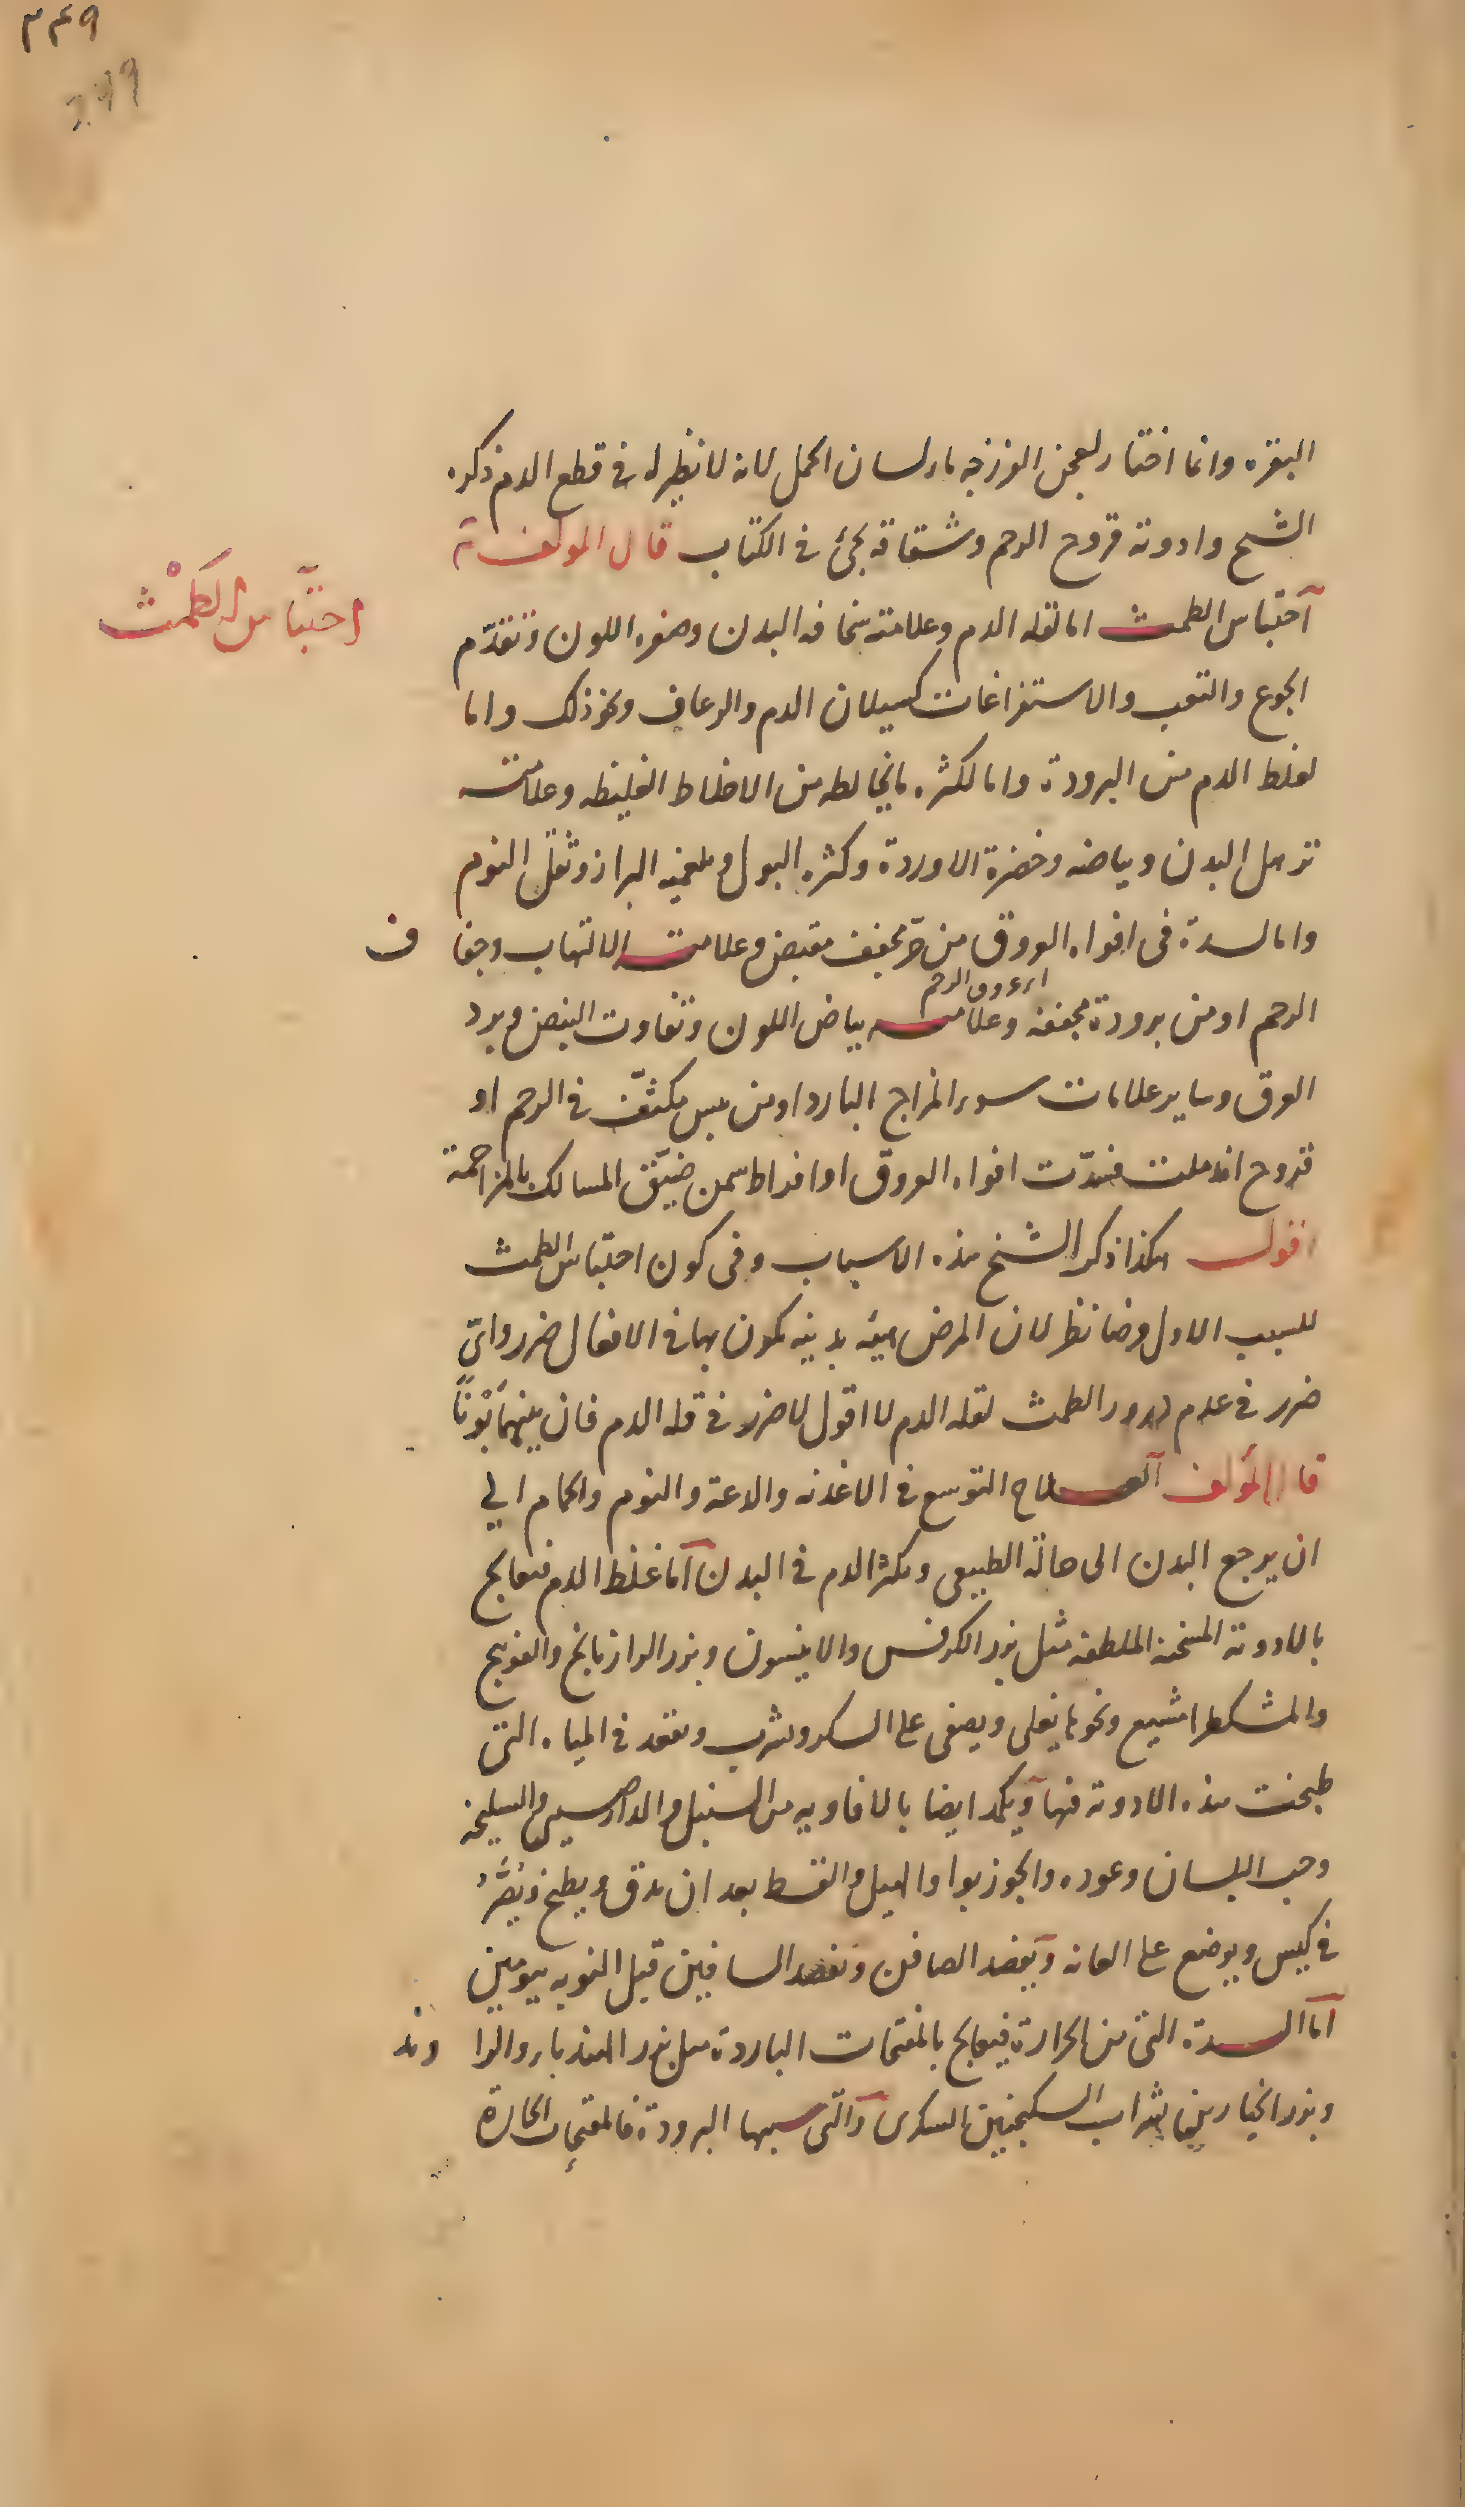 ٢٤٩
249
البقره وانما اختار لعجن الفرزجه ماء لسان الحمل لانه لا نظير له فى قطع الدم ذكره
الشيخ وادوية قروح الرحم وشقاقه يجئ فى الكتاب قال المولف
احتباس الطمث
احتباس الطمث اما لقله الدم وعلامته نحافه البدن وصفره اللون وتقدّم
الجوع والتعب والاستفراغات كسيلان الدم والرعاف ونحو ذلك واما
لغلظ الدم من البرودة واما لكثره ما يخالطه من الاخلاط الغليظه وعلامته
ترهل البدن وبياضه وخضرة الاوردة وكثره البول وبلغميه البراز وثقل النوم
واما لسدة فى افواه العروق من حرّ مجفف مقبض وعلامته الالتهاب وجفا ف
اى عروق الرحم
الرحم او من برودة مجففه وعلامته بياض اللون وتفاوت النبض وبرد
العرق وساير علامات سوء المزاج البارد او من يبس مكثّف فى الرحم او
قروح اندملت فسدّت افواه العروق او افراط سمن ضيّق المسالك بالمزاحمة
اقول هكذا ذكر الشيخ هذه الاسباب وفى كون احتباس الطمث
للسبب الاول مرضا نظر لان المرض هيئه بدنيه يكون بها فى الافعال ضرر واىّ
ضرر فى عدم درور الطمث لقله الدم لا اقول لا ضرر فى قله الدم فان بينهما بَوْنًا
قال المؤلف العلاج التوسع فى الاغذيه والدعة والنوم والحمام الى
ان يرجع البدن الى حالة الطبيعى ويكثر الدم فى البدن اما غلظ الدم فيعالج
بالادوية المسخنة الملطفه مثل بزر الكرفس والانيسون وبزر الرازيانج والفوتنج
والمشكطرامشيع ونحوها يغلى ويصفى على السكر ويشرب ويقعد فى المياه التى
طبخت هذه الادوية فيها ويكمد ايضا بالافاويه من السنبل والدارصينى والسليخه
وحب البلسان وعوده والجوزبوا والهيل والقسط بعد ان يدق ويطبخ ويُصَرُّ
فى كيس ويوضع على العانه ويفصد الصافن وتفصد الساقين قبل النوبه بيومين
اما السدة التى من الحرارة فيعالج بالمفتحات الباردة مثل بزر الهندباء والرا وند
وبزر الخيارين بشراب السكنجبين السكرى والتى سببها البرودة فالمفتحات الحارة